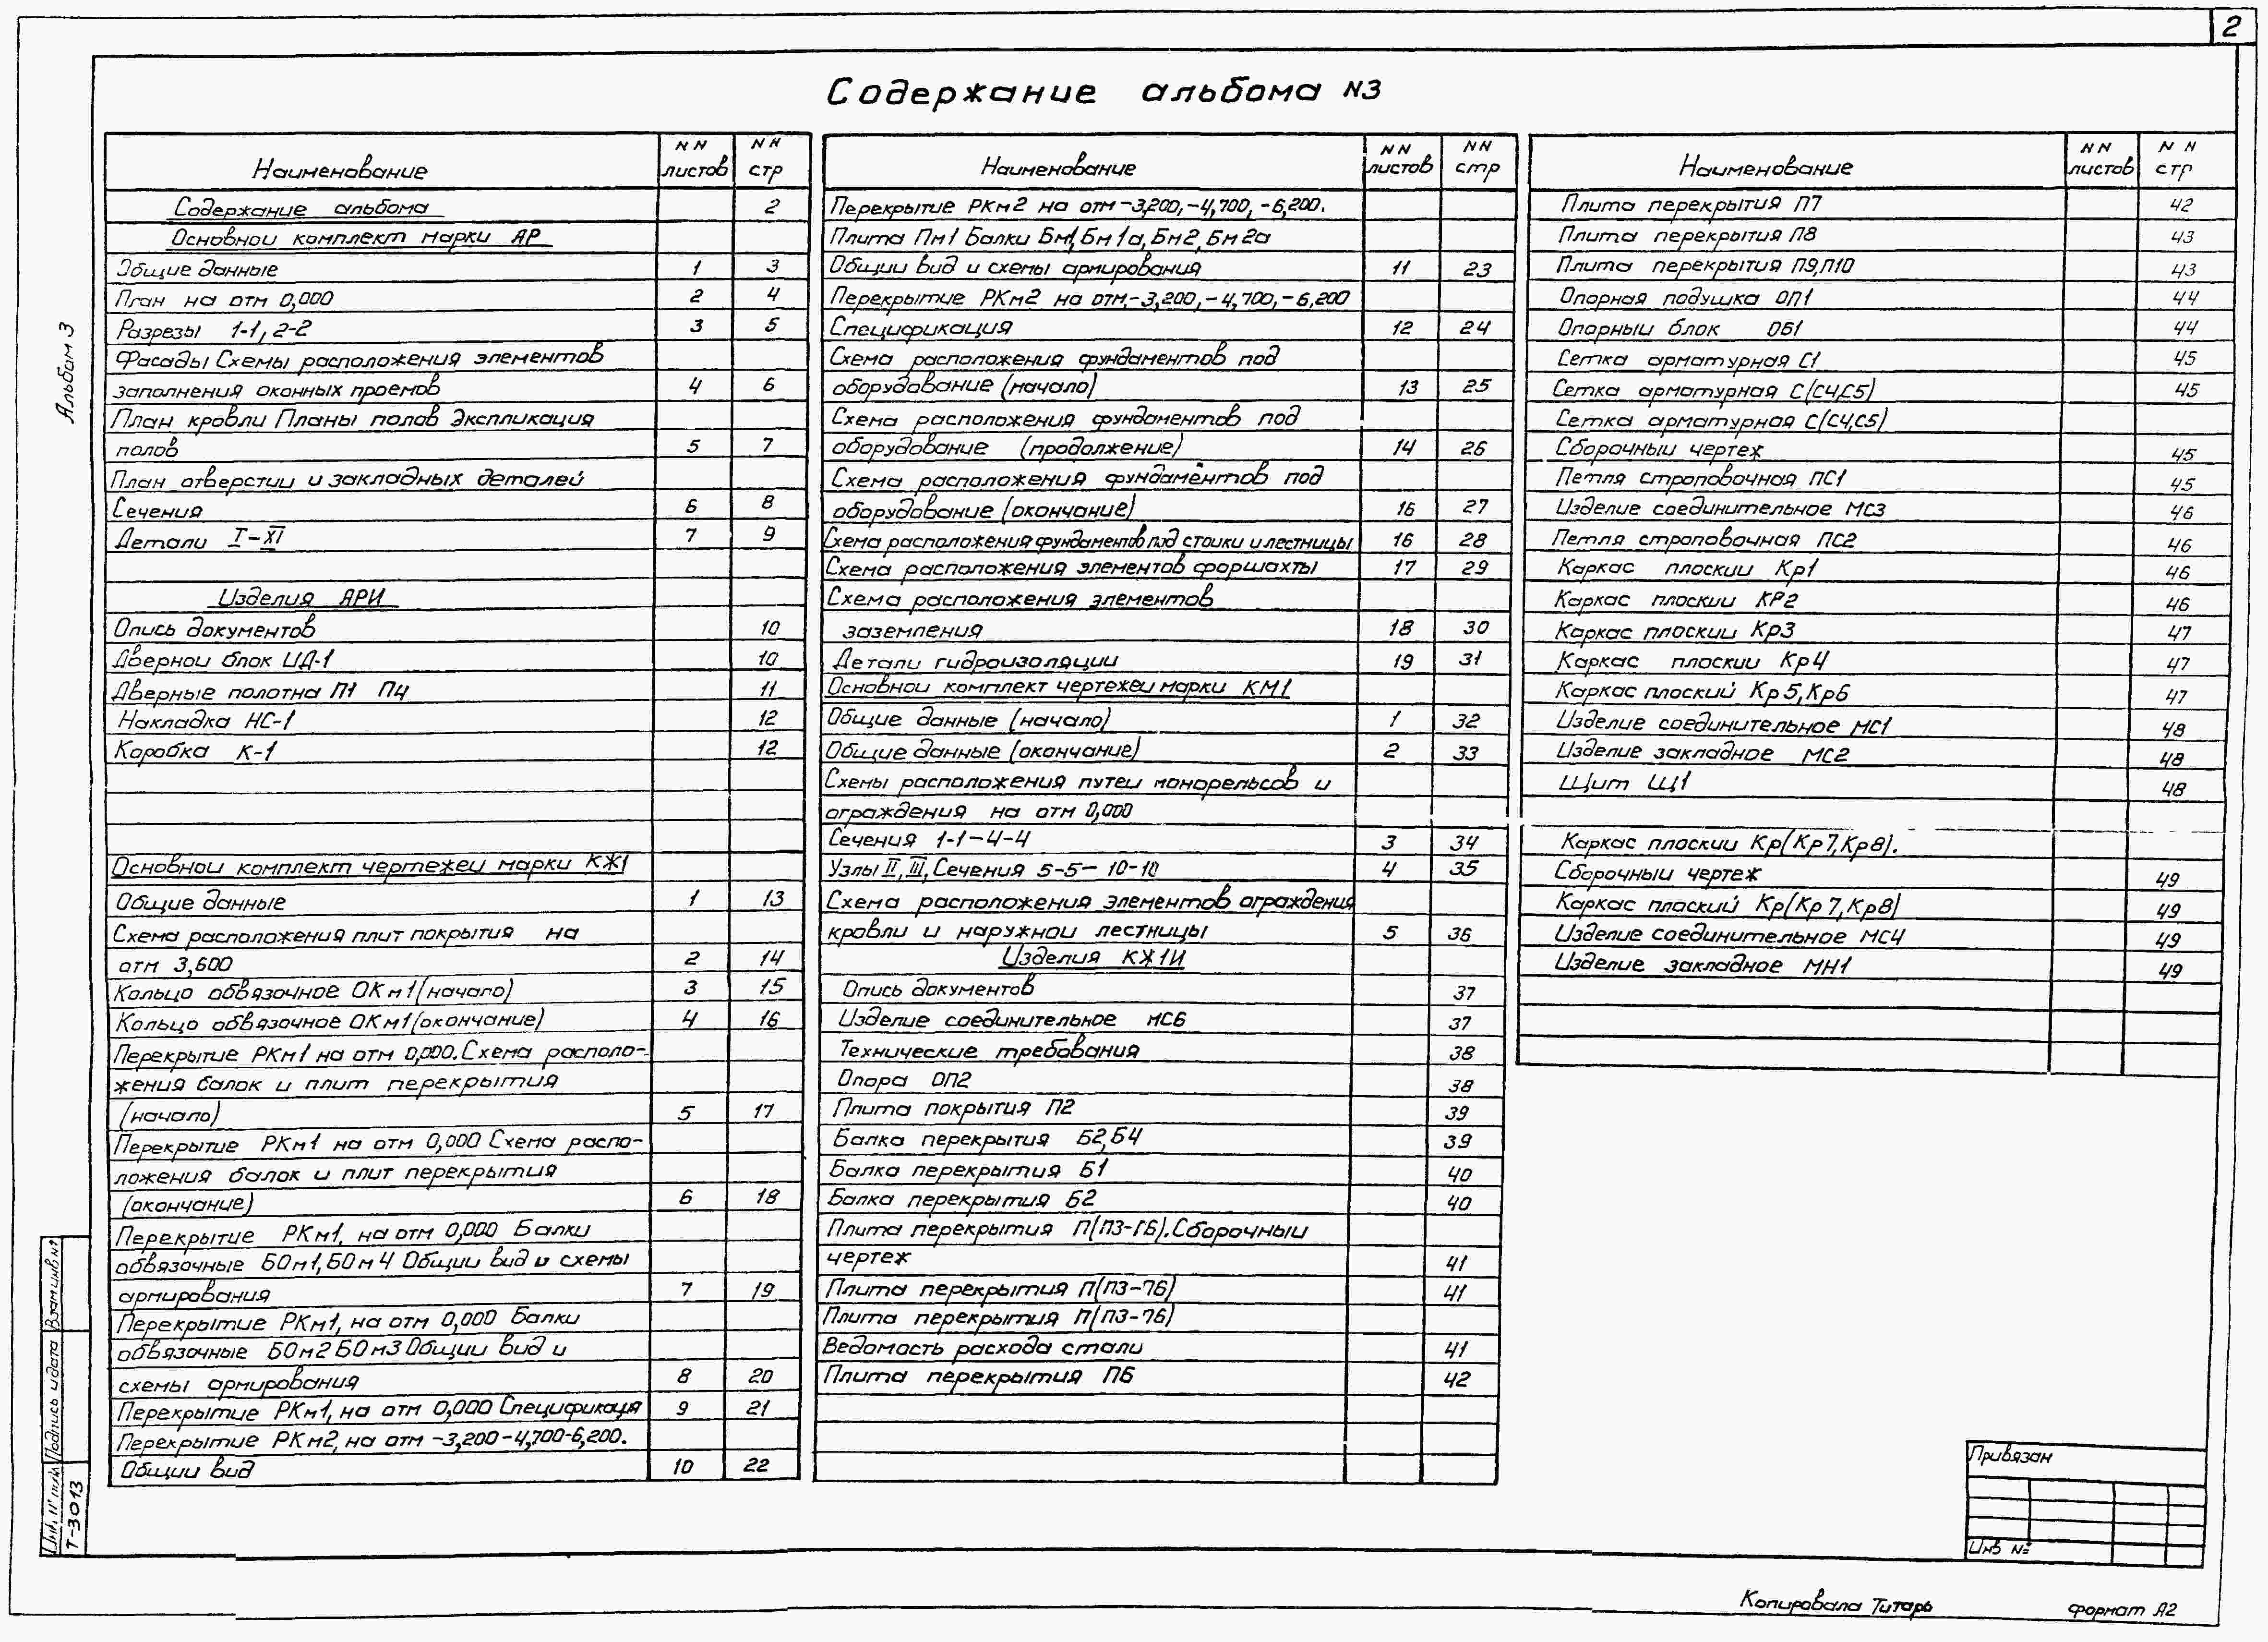 2
Содержание альбома N3
Альбом 3
Наименование NN листов NN стр
Содержание альбома 2
Основнои комплект марки АР
Общие данные 1 3
План на отм 0,000 2 4
Разрезы 1-1, 2-2 3 5
Фасады Схемы расположения элементов
заполнения оконных проемов 4 6
План кровли Планы полов Экспликация
полов 5 7
План отверстии и закладных деталей
Сечения 6 8
Детали I-XI 7 9
Изделия АРИ
Опись документов 10
Двернои блок ИД-1 10
Дверные полотна П1 П4 11
Накладка НС-1 12
Коробка К-1 12
Основнои комплект чертежеи марки КЖ1
Общие данные 1 13
Схема расположения плит покрытия на
отм 3,600 2 14
Кольцо обвязочное ОКм1 (начало) 3 15
Кольцо обвязочное ОКм1 (окончание) 4 16
Перекрытие РКм1 на отм 0,000. Схема располо-
жения балок и плит перекрытия
(начало) 5 17
Перекрытие РКм1 на отм 0,000 Схема распо-
ложения балок и плит перекрытия
(окончание) 6 18
Перекрытие РКм1, на отм 0,000 Балки
обвязочные БОм1, БОм4 Общии вид и схемы
армирования 7 19
Перекрытие РКм1, на отм 0,000 Балки
обвязочные БОм2 БОм3 Общии вид и
схемы армирования 8 20
Перекрытие РКм1, на отм 0,000 Спецификаця 9 21
Перекрытие РКм2, на отм -3,200-4,700-6,200.
Общии вид 10 22
Наименование NN листов NN стр
Перекрытие РКм2 на отм -3,200, -4,700, -6,200.
Плита Пм1 Балки Бм1, Бм1а, Бм2, Бм2а
Общии вид и схемы армирования 11 23
Перекрытие РКм2 на отм. -3,200, -4,700, -6,200
Спецификация 12 24
Схема расположения фундаментов под
оборудование (начало) 13 25
Схема расположения фундаментов под
оборудование (продолжение) 14 26
Схема расположения фундаментов под
оборудование (окончание) 16 27
Схема расположения фундаментов под стоики и лестницы 16 28
Схема расположения элементов форшахты 17 29
Схема расположения элементов
заземления 18 30
Детали гидроизоляции 19 31
Основнои комплект чертежеи марки КМ1
Общие данные (начало) 1 32
Общие данные (окончание) 2 33
Схемы расположения путеи монорельсов и
ограждения на отм 0,000
Сечения 1-1-4-4 3 34
Узлы II, III, Сечения 5-5-10-10 4 35
Схема расположения элементов ограждения
кровли и наружнои лестницы 5 36
Изделия КЖ1И
Опись документов 37
Изделие соединительное МС6 37
Технические требования 38
Опора ОП2 38
Плита покрытия П2 39
Балка перекрытия Б2, Б4 39
Балка перекрытия Б1 40
Балка перекрытия Б2 40
Плита перекрытия П(П3-Г6). Сборочныи
чертеж 41
Плита перекрытия П(П3-П6) 41
Плита перекрытия П(П3-П6)
Ведомость расхода стали 41
Плита перекрытия П6 42
Наименование NN листов NN стр
Плита перекрытия П7 42
Плита перекрытия П8 43
Плита перекрытия П9, П10 43
Опорная подушка ОП1 44
Опорныи блок ОБ1 44
Сетка арматурная С1 45
Сетка арматурная С(С4,С5) 45
Сетка арматурная С(С4,С5)
Сборочныи чертеж 45
Петля строповочная ПС1 45
Изделие соединительное МС3 46
Петля строповочная ПС2 46
Каркас плоскии Кр1 46
Каркас плоскии КР2 46
Каркас плоскии Кр3 47
Каркас плоскии Кр4 47
Каркас плоский Кр5, Кр6 47
Изделие соединительное МС1 48
Изделие закладное МС2 48
Щит Щ1 48
Каркас плоскии Кр(Кр7, Кр8).
Сборочныи чертеж 49
Каркас плоский Кр(Кр7, Кр8) 49
Изделие соединительное МС4 49
Изделие закладное МН1 49
Взам.инв.№
Подпись и дата
Инв. N° подл
Т-3013
Привязан
Инв №
Копировала Титарь
формат А2